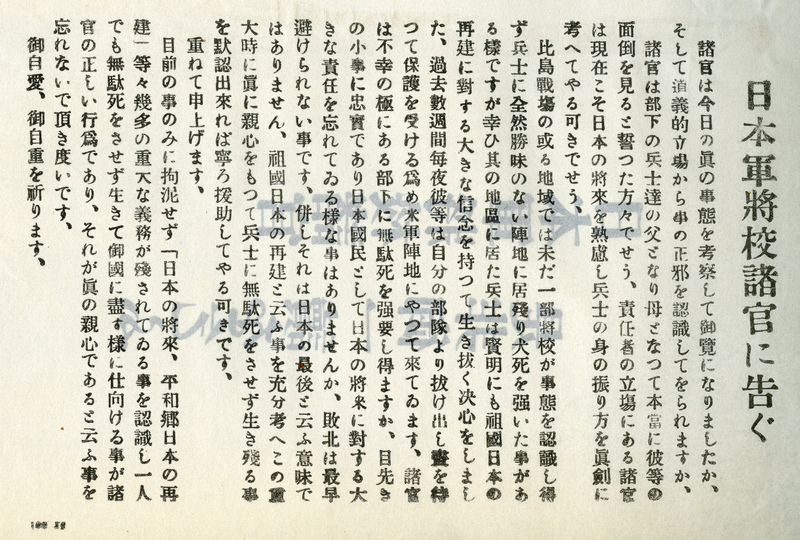 日本軍將校諸官に告ぐ
諸官は今日の眞の事態を考察して御覽になりましたか、
そして道義的立場から事の正邪を認識してをられますか、
諸官は部下の兵士達の父となり母となつて本當に彼等の
面倒を見ると誓つた方々でせう、責任者の立場にある諸官
は現在こそ日本の將來を熟慮し兵士の身の振り方を眞劍に
考へてやる可きでせう、
比島戰場の或る地域では未だ一部將校が事態を認識し得
ず兵士に全然勝味のない陣地に居殘り犬死を强いた事があ
る樣ですが幸ひ其の地區に居た兵士は賢明にも祖國日本の
再建に對する大きな信念を持つて生き拔く決心をしまし
た、過去數週間每夜彼等は自分の部隊より拔け出し晝を待
つて保護を受ける爲め米軍陣地にやつて來てゐます、諸官
は不幸の極にある部下に無駄死を强要し得ますか、目先き
の小事に忠實であり日本國民として日本の將來に對する大
きな責任を忘れてゐる樣な事はありませんか、敗北は最早
避けられない事です、併しそれは日本の最後と云ふ意味で
はありません、祖國日本の再建と云ふ事を充分考へこの重
大時に眞に親心をもつて兵士に無駄死をさせず生き殘る事
を默認出來れば寧ろ援助してやる可きです、
重ねて申上げます、
目前の事のみに拘泥せず「日本の將來、平和鄕日本の再
建」等々幾多の重大な義務が殘されてゐる事を認識し一人
でも無駄死をさせず生きて御國に盡す樣に仕向ける事が諸
官の正しい行爲であり、それが眞の親心であると云ふ事を
忘れないで頂き度いです、
御自愛、御自重を祈ります、